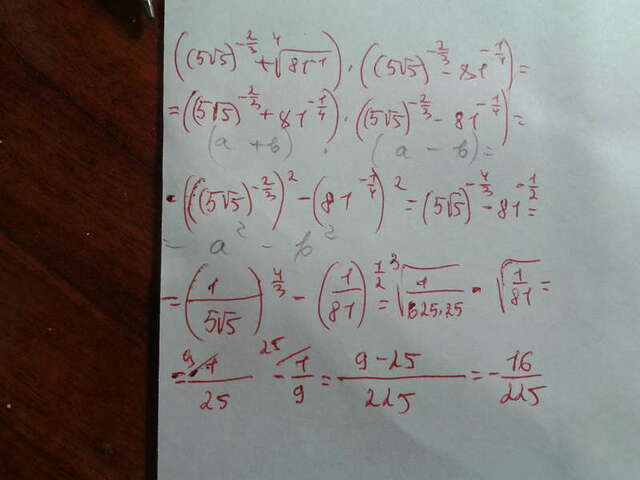 ((5√5)^{-2/3} + ⁴√(81⁻¹)) · ((5√5)^{-2/3} - 81^{-1/4}) =
= ((5√5)^{-2/3} + 81^{-1/4}) · ((5√5)^{-2/3} - 81^{-1/4}) =
(a + b) · (a - b) =
· ((5√5)^{-2/3})² - (81^{-1/4})² = (5√5)^{-4/3} - 81^{-1/2} =
= a² - b²
= (1/(5√5))^{4/3} - (1/81)^{1/2} = ³√(1/(625·25)) - √(1/81) =
= 9/ 1/25 - 25/ 1/9 = (9-25)/225 = -16/225